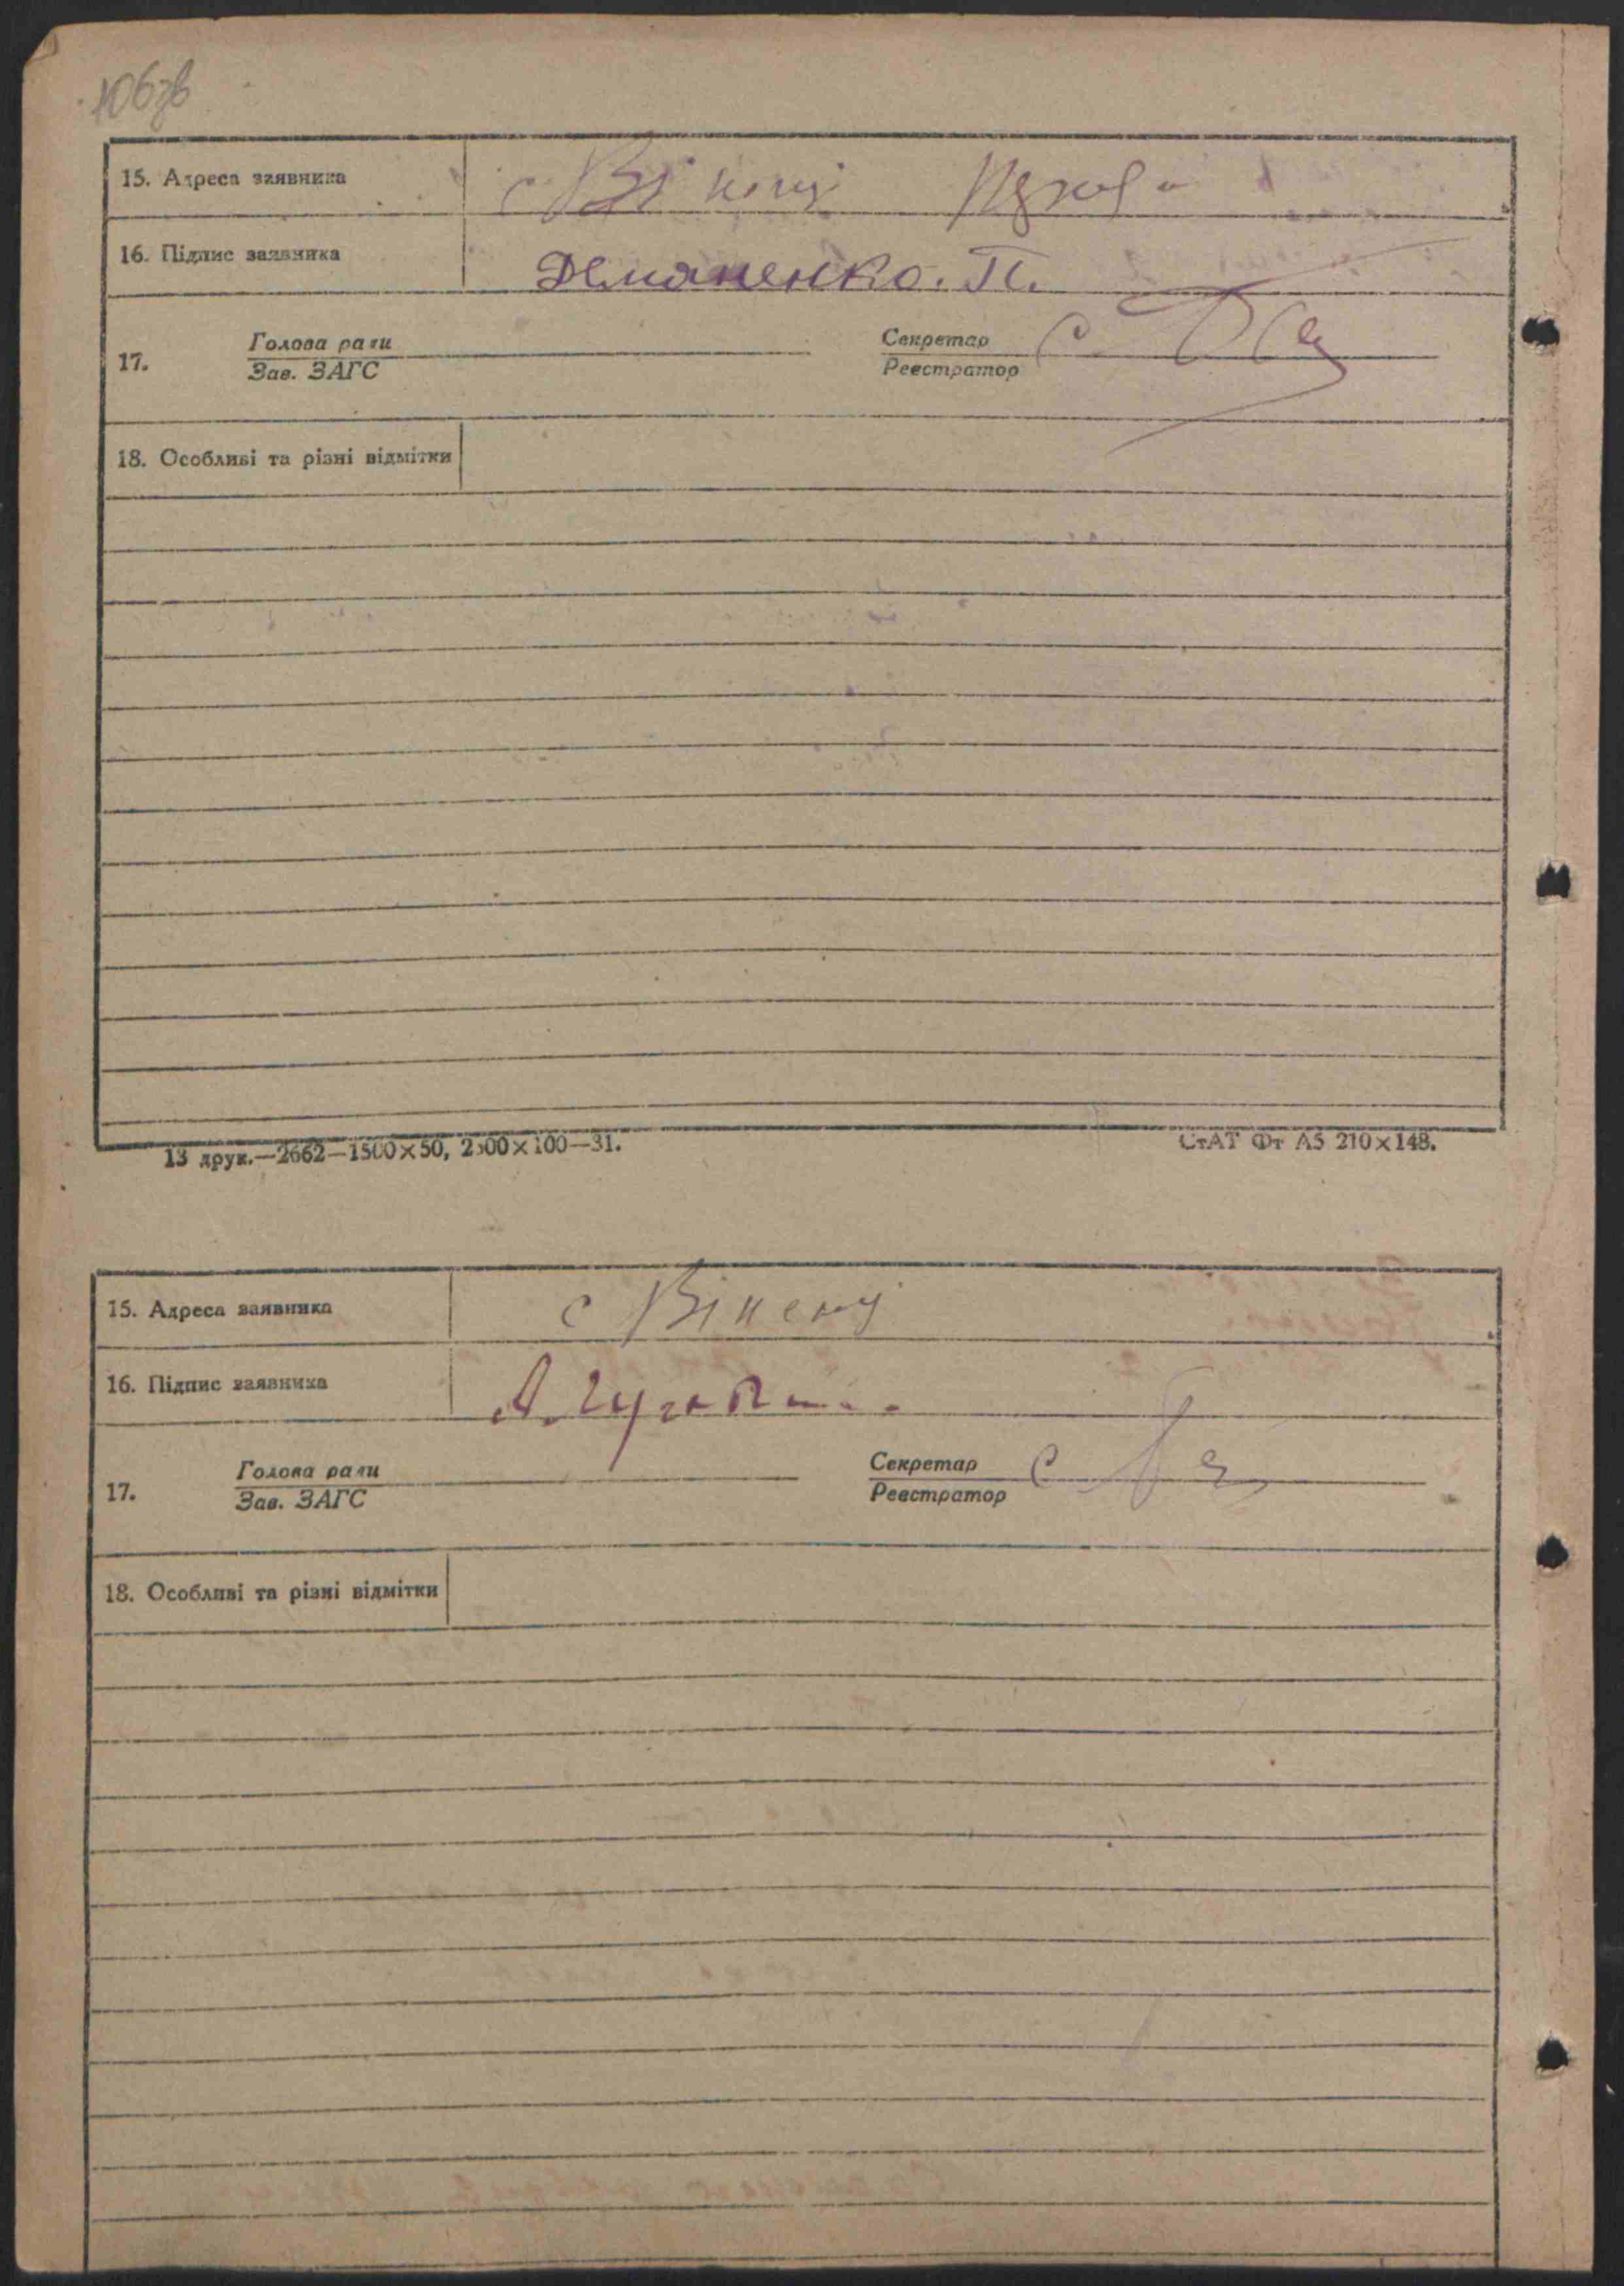 106зв
15. Адреса заявника
16. Підпис заявника Деманенко. П.
17. Голова ради Секретар
Зав. ЗАГС Реєстратор
18. Особливі та різні відмітки
13 друк.—2662—1500×50, 2500×100—31. СтАТ Фт А5 210×148.
15. Адреса заявника с
16. Підпис заявника А.
17. Голова ради Секретар
Зав. ЗАГС Реєстратор
18. Особливі та різні відмітки